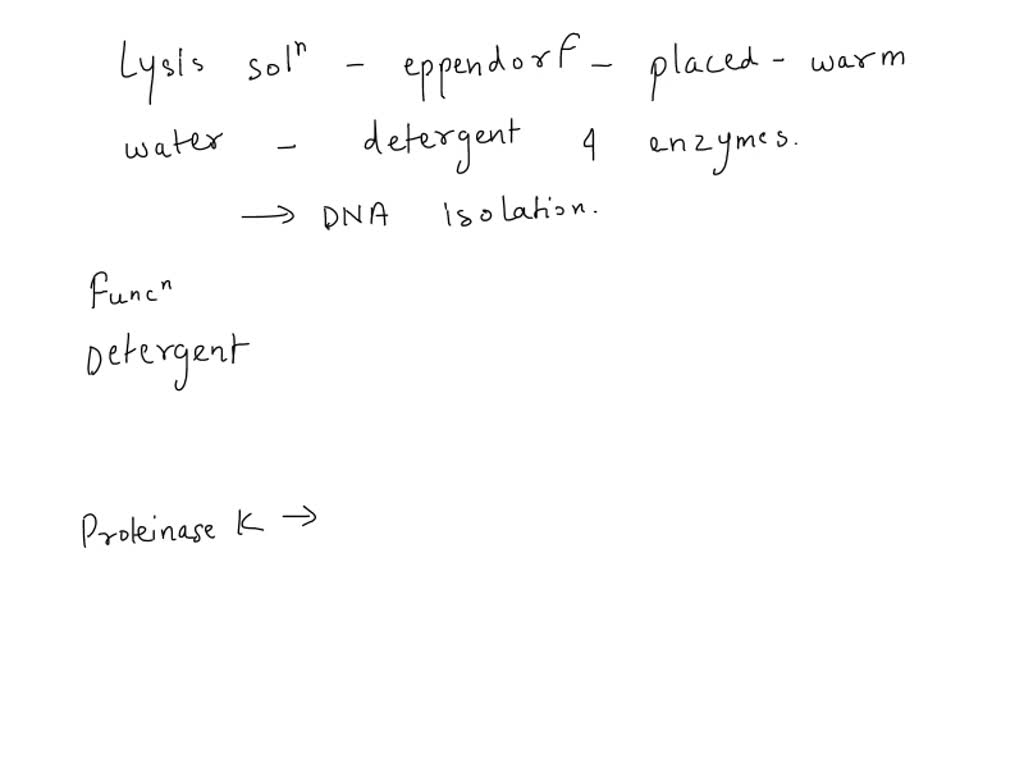 Lysis solⁿ - eppendorf - placed - warm
water - detergent & enzymes.
→ DNA isolation.
Funcⁿ
Detergent
Proteinase K →